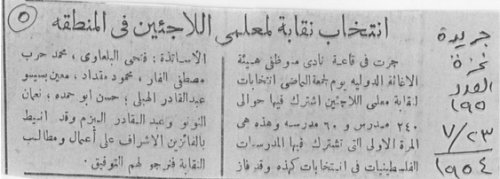 ٥
انتخاب نقابة لمعلمي اللاجئين في المنطقه
جرت في قاعة نادى موظفى هيئة
الاغاثة الدوليه يوم الجمعة الماضى انتخابات
لنقابة معلمى اللاجئين اشترك فيها حوالى
٢٤٠ مدرس و ٦٠ مدرسه وهذه هى
المرة الاولى التى تشترك فيها المدرسات
الفلسطينيات في انتخابات كهذه وقد فاز
الاساتذة : فتحى البلعاوى ، محمد حرب
مصطفى الفار ، محمود مقداد ، معين بسيسو
عبدالقادر الهبلى ، حسن ابو حمده ، نعمان
النونو وعبد القادر وقد انيط
بالفائزين الاشراف على أعمال ومطالب
النقابة فنرجو لهم التوفيق .
جريدة
غزة
العدد
١٩٥
٧/٢٣
١٩٥٤